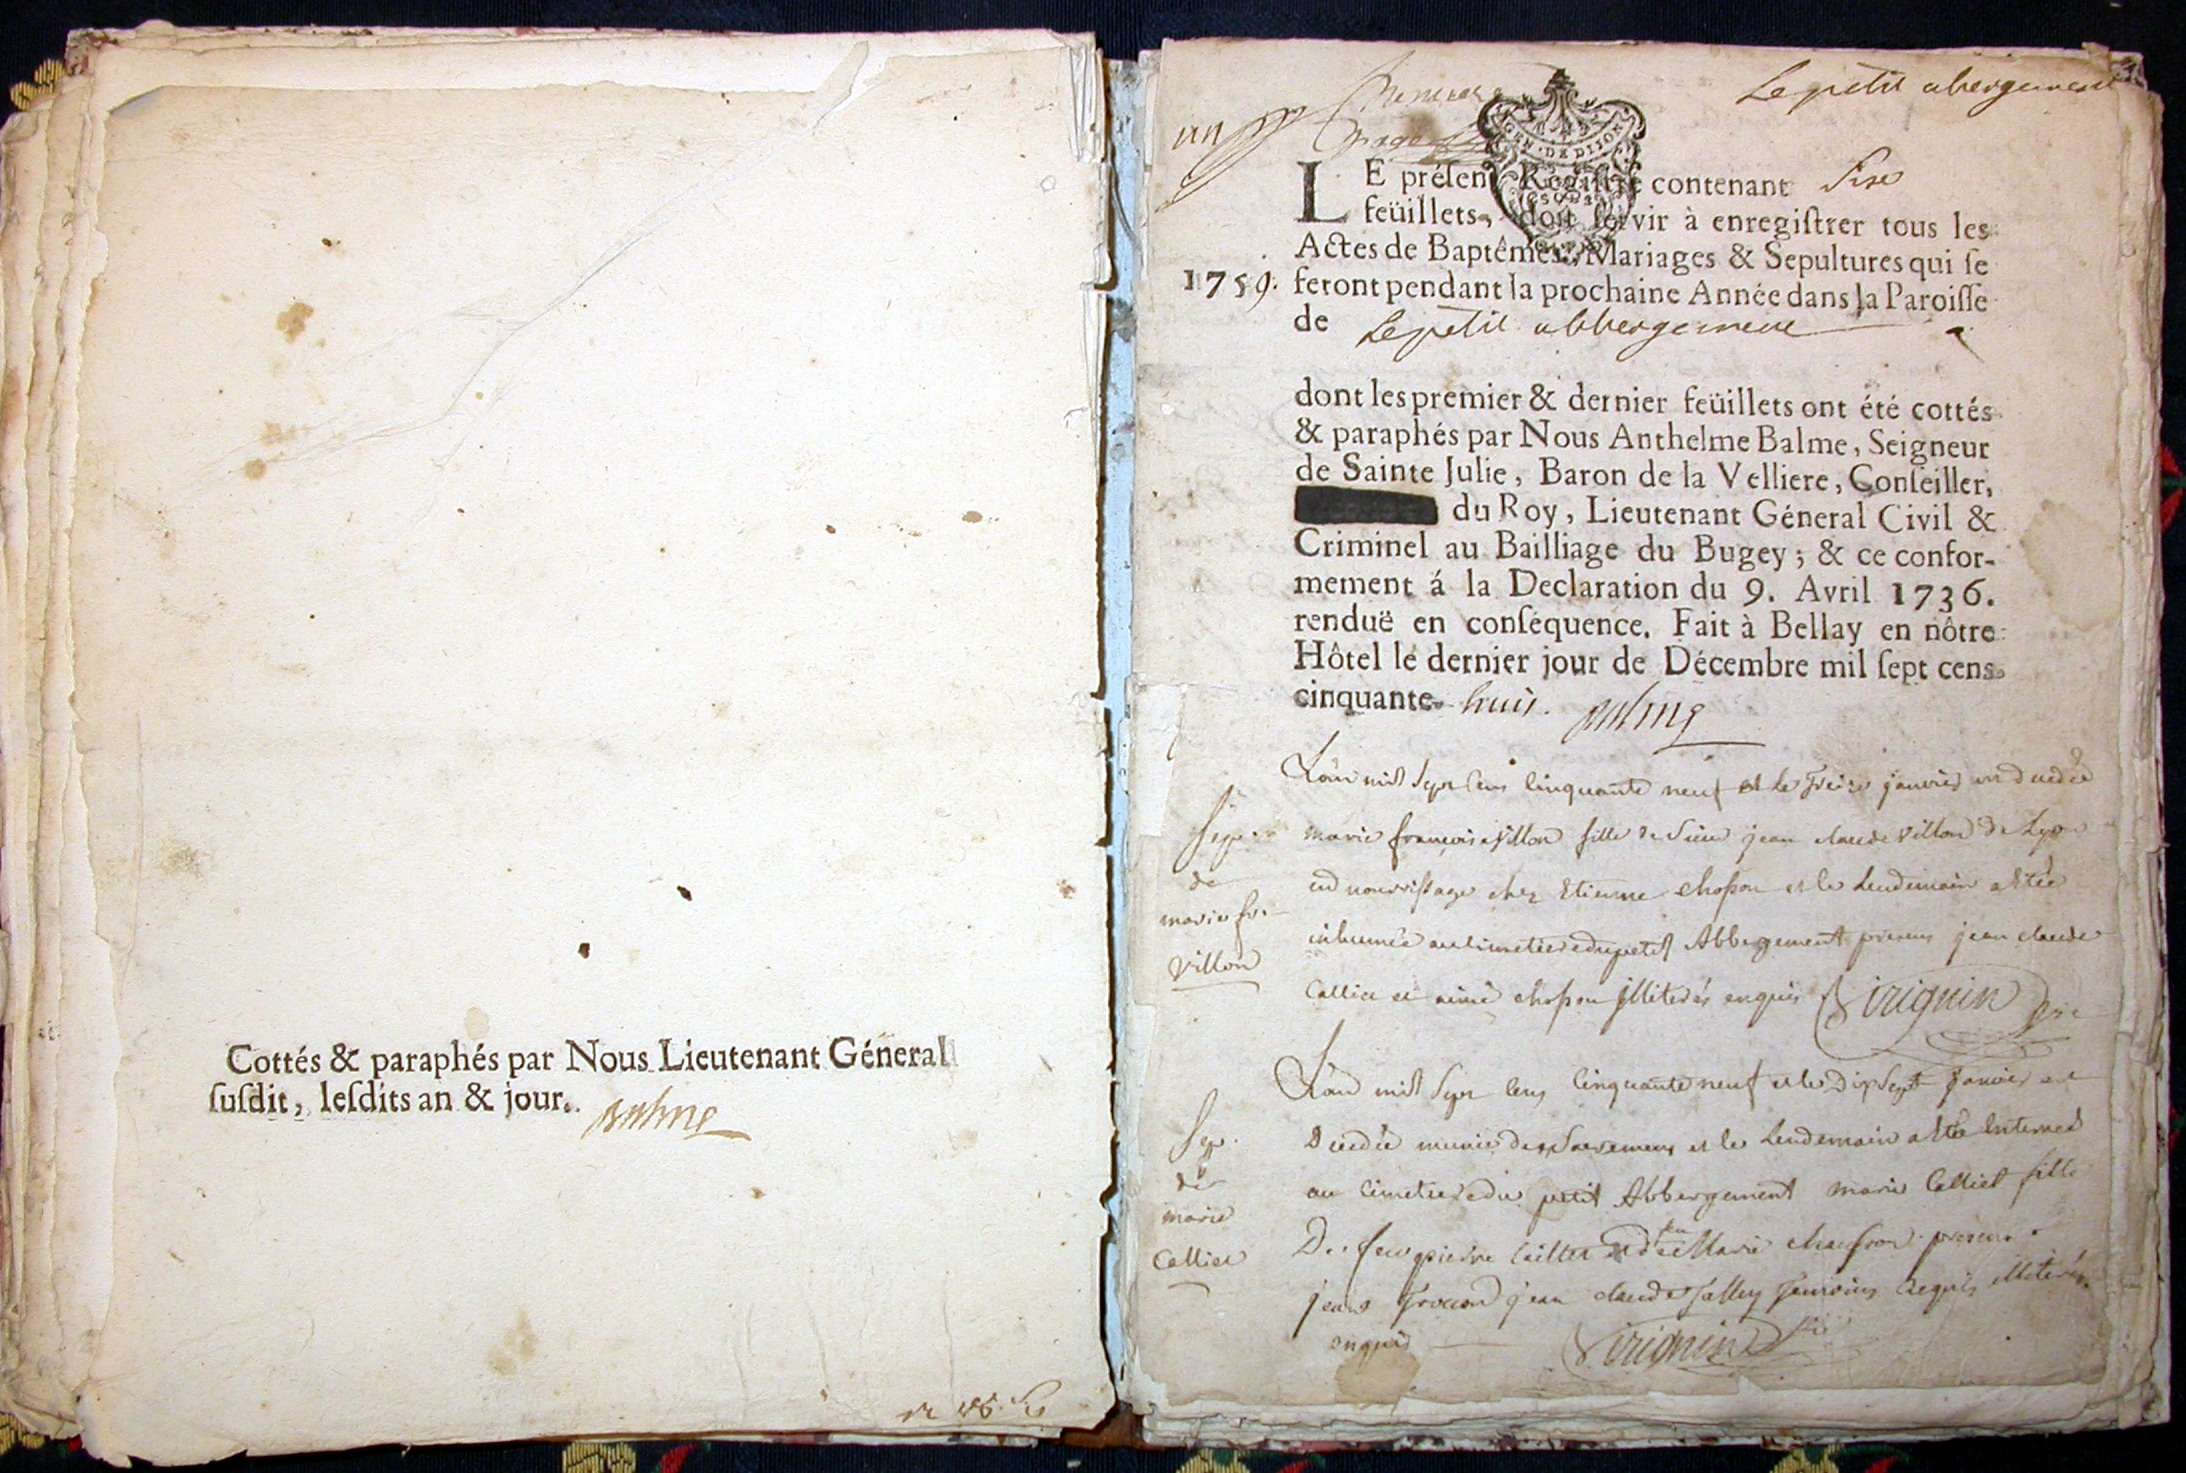 Cottés & paraphés par Nous Lieutenant Géneral
ſuſdit, leſdits an & jour.
Balme
un
Le petit abergement
GEN · DE DIJON
LE préſent Regiſtre contenant Sixe
feüillets, doit ſervir à enregiſtrer tous les
Actes de Baptêmes, Mariages & Sepultures qui ſe
1759. feront pendant la prochaine Année dans la Paroiſſe
de Le petit abbergement
dont les premier & dernier feüillets ont été cottés
& paraphés par Nous Anthelme Balme, Seigneur
de Sainte Julie, Baron de la Velliere, Conſeiller,
du Roy, Lieutenant Géneral Civil &
Criminel au Bailliage du Bugey; & ce confor-
mement á la Declaration du 9. Avril 1736.
renduë en conſéquence. Fait à Bellay en nôtre
Hôtel le dernier jour de Décembre mil ſept cens
cinquante-huit. Balme
Sep.
de
marie fr.
Villon
L'an mil sept cens cinquante neuf et le treize janvier est decedée
marie françoise villon fille de sieur jean claude villon de Lyon
en nourrissage chez Etienne chosson et le lendemain a étée
inhumée au cimetiere du petit Abbergement presens jean claude
Callier et aimé chosson illiterés enquis Virignin ptre
Sep.
de
marie
Callier
L'an mil sept cens cinquante neuf et le dix sept janvier est
decedée munie des sacremens et le lendemain a étée enterrée
au cimetiere du petit Abbergement marie Callier fille
De feu pierre Callier et de feu Marie présens
jean jean claude temoins requis illiterés
enquis Virignin ptre